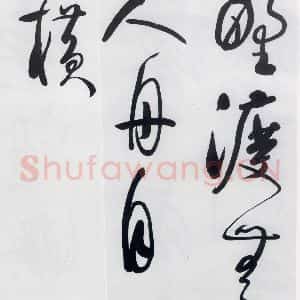 野渡无
人舟自
横
Shufawang.CN